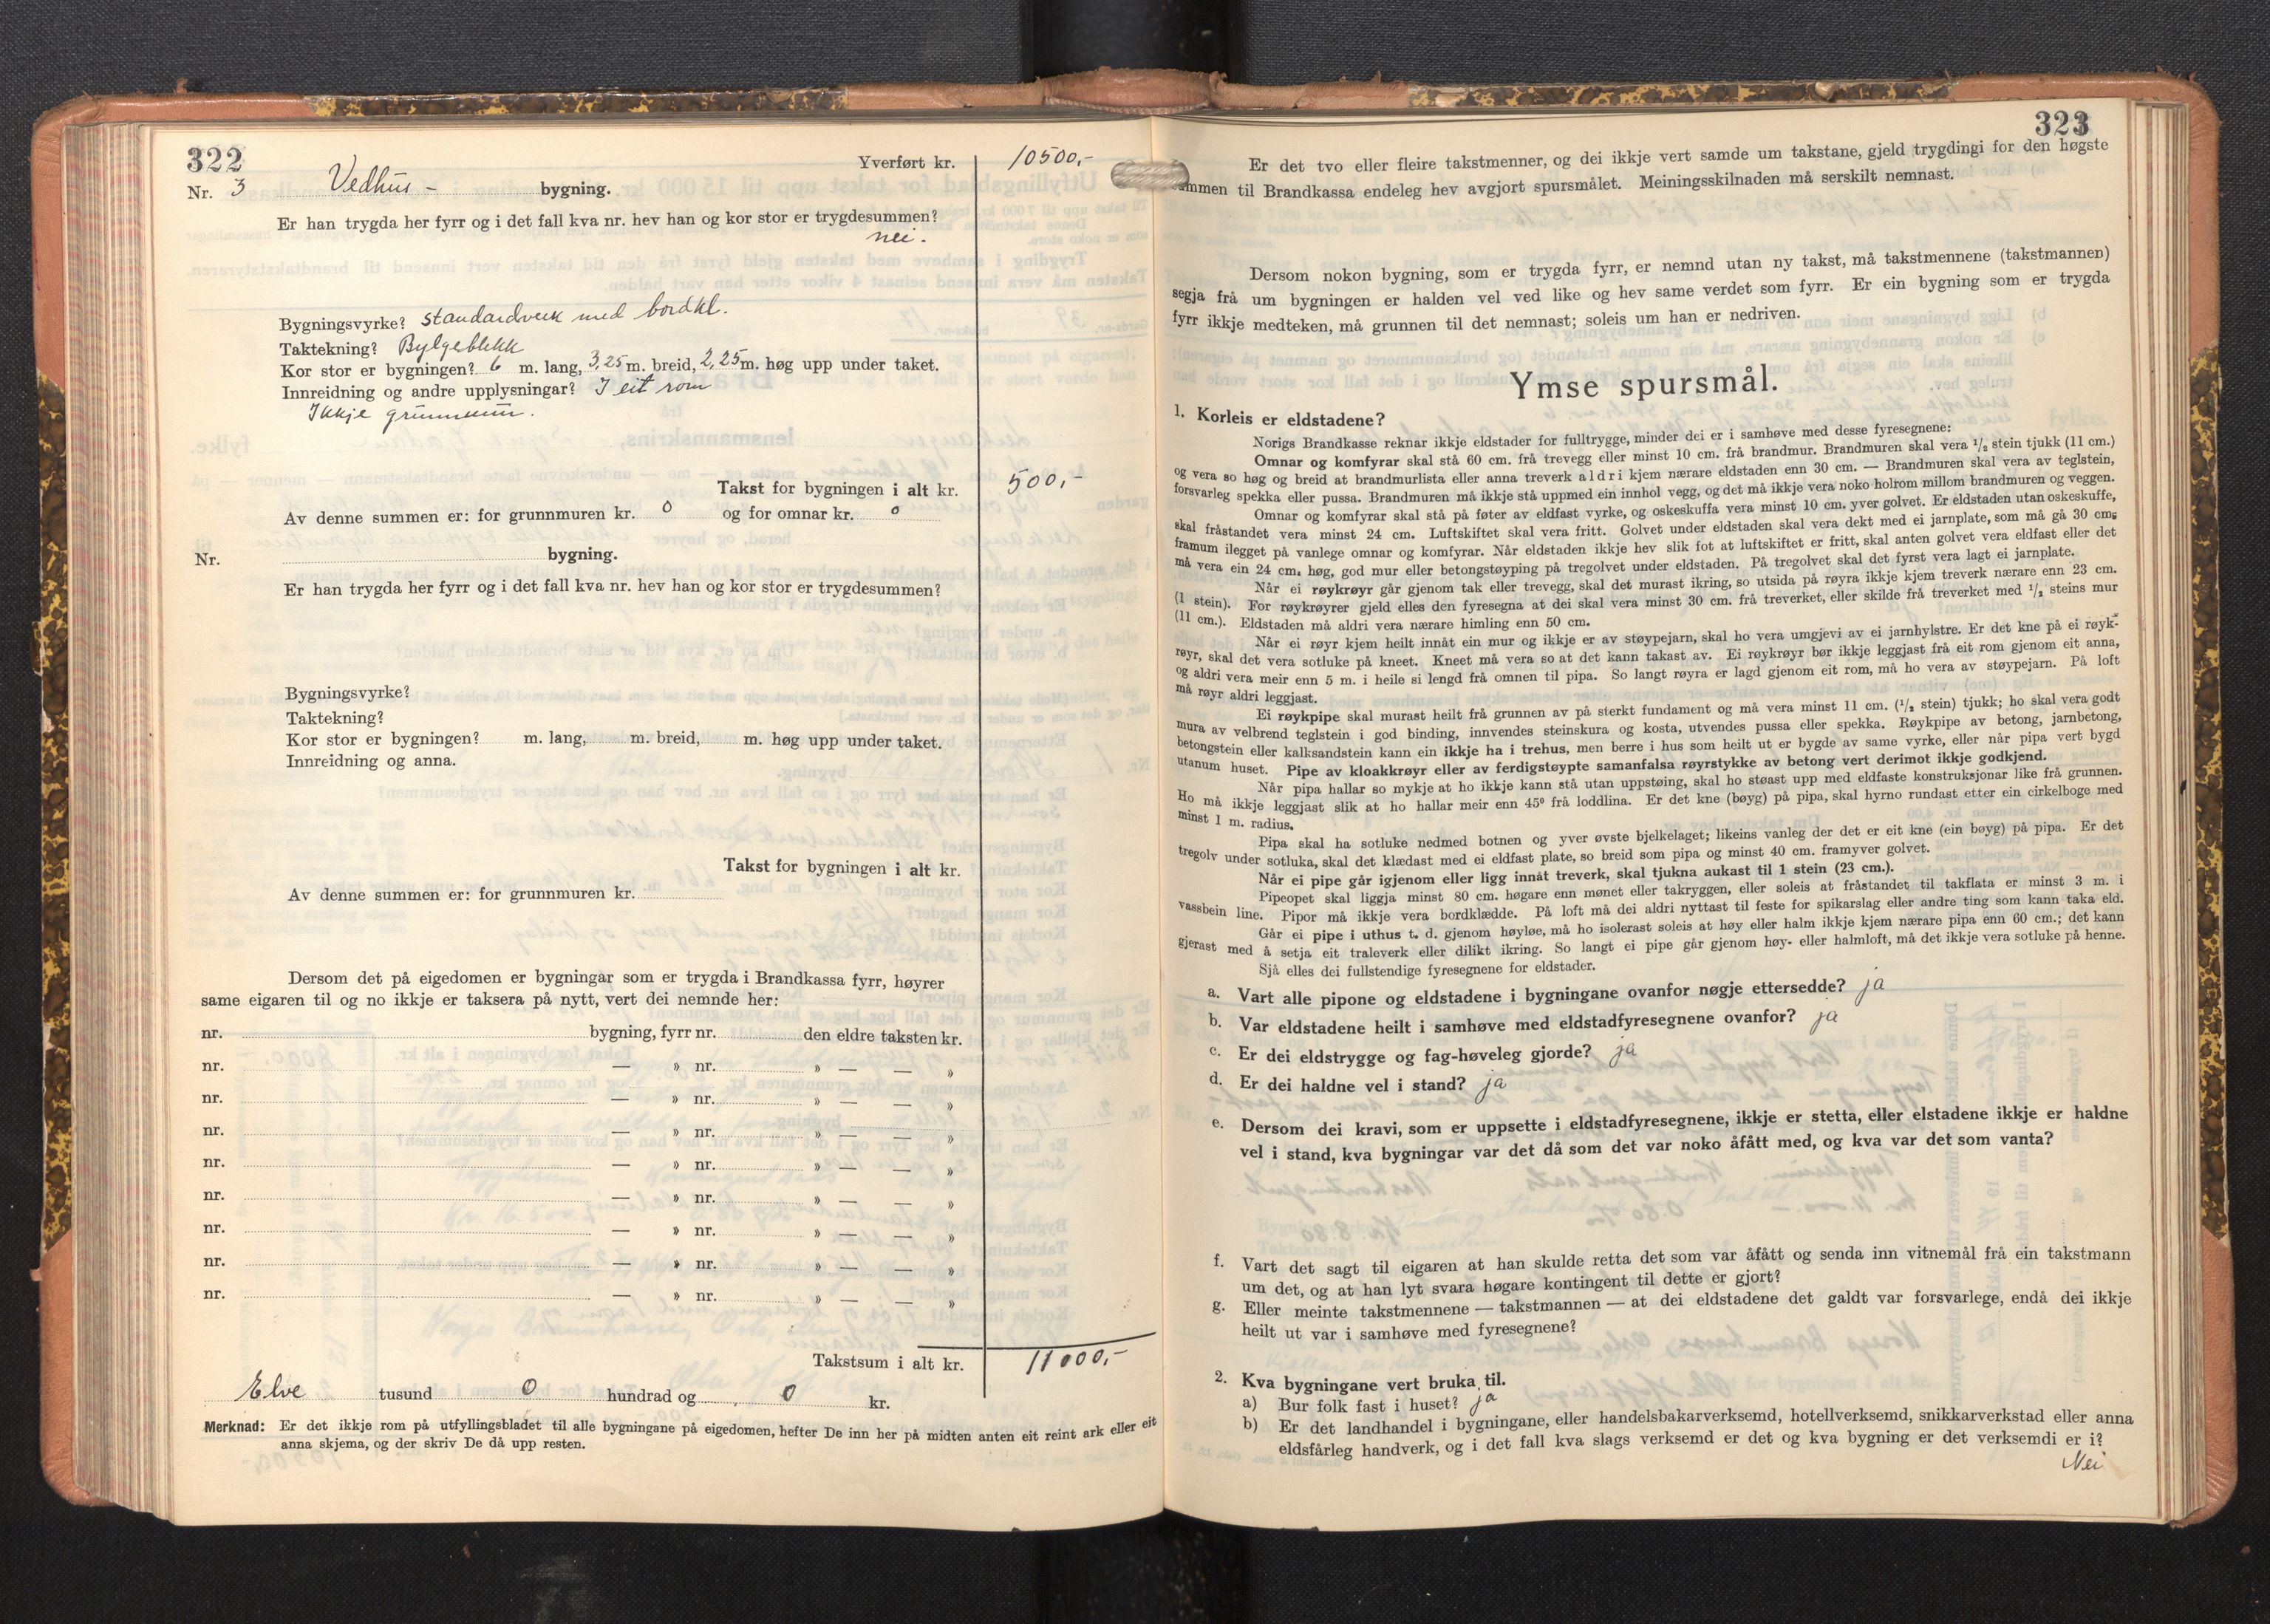 322
Yverført kr. 10500,-
Nr. 3 Vedhus- bygning.
Er han trygda her fyrr og i det fall kva nr. hev han og kor stor er trygdesummen?
nei.
Bygningsvyrke? standardverk med bordkl.
Taktekning? Bylgeblekk
Kor stor er bygningen? 6 m. lang, 3,25 m. breid, 2,25 m. høg upp under taket.
Innreidning og andre upplysningar? I eit rom
Ikkje grunnmur.
Takst for bygningen i alt kr. 500,-
Av denne summen er: for grunnmuren kr. 0 og for omnar kr. 0
Nr. bygning.
Er han trygda her fyrr og i det fall kva nr. hev han og kor stor er trygdesummen?
Bygningsvyrke?
Taktekning?
Kor stor er bygningen? m. lang, m. breid, m. høg upp under taket.
Innreidning og anna.
Takst for bygningen i alt kr.
Av denne summen er: for grunnmuren kr.
Dersom det på eigedomen er bygningar som er trygda i Brandkassa fyrr, høyrer
same eigaren til og no ikkje er taksera på nytt, vert dei nemnde her:
nr. bygning, fyrr nr. den eldre taksten kr.
nr. — » nr. » — — »
nr. — » nr. » — — »
nr. — » nr. » — — »
nr. — » nr. » — — »
nr. — » nr. » — — »
nr. — » nr. » — — »
nr. — » nr. » — — »
nr. — » nr. » — — »
Takstsum i alt kr. 11000,-
Elve tusund 0 hundrad og 0 kr.
Merknad: Er det ikkje rom på utfyllingsbladet til alle bygningane på eigedomen, hefter De inn her på midten anten eit reint ark eller eit
anna skjema, og der skriv De då upp resten.
323
Er det tvo eller fleire takstmenner, og dei ikkje vert samde um takstane, gjeld trygdingi for den høgste
summen til Brandkassa endeleg hev avgjort spursmålet. Meiningsskilnaden må serskilt nemnast.
Dersom nokon bygning, som er trygda fyrr, er nemnd utan ny takst, må takstmennene (takstmannen)
segja frå um bygningen er halden vel ved like og hev same verdet som fyrr. Er ein bygning som er trygda
fyrr ikkje medteken, må grunnen til det nemnast; soleis um han er nedriven.
Ymse spursmål.
1. Korleis er eldstadene?
Norigs Brandkasse reknar ikkje eldstader for fulltrygge, minder dei er i samhøve med desse fyresegnene:
Omnar og komfyrar skal stå 60 cm. frå trevegg eller minst 10 cm. frå brandmur. Brandmuren skal vera 1/2 stein tjukk (11 cm.)
og vera so høg og breid at brandmurlista eller anna treverk aldri kjem nærare eldstaden enn 30 cm. — Brandmuren skal vera av teglstein,
forsvarleg spekka eller pussa. Brandmuren må ikkje stå uppmed ein innhol vegg, og det må ikkje vera noko holrom millom brandmuren og veggen.
Omnar og komfyrar skal stå på føter av eldfast vyrke, og oskeskuffa vera minst 10 cm. yver golvet. Er eldstaden utan oskeskuffe,
skal fråstandet vera minst 24 cm. Luftskiftet skal vera fritt. Golvet under eldstaden skal vera dekt med ei jarnplate, som må gå 30 cm.
framum ilegget på vanlege omnar og komfyrar. Når eldstaden ikkje hev slik fot at luftskiftet er fritt, skal anten golvet vera eldfast eller det
må vera ein 24 cm. høg, god mur eller betongstøyping på tregolvet under eldstaden. På tregolvet skal det fyrst vera lagt ei jarnplate.
Når ei røykrøyr går gjenom tak eller trevegg, skal det murast ikring, so utsida på røyra ikkje kjem treverk nærare enn 23 cm.
(1 stein). For røykrøyrer gjeld elles den fyresegna at dei skal vera minst 30 cm. frå treverket, eller skilde frå treverket med 1/2 steins mur
(11 cm.). Eldstaden må aldri vera nærare himling enn 50 cm.
Når ei røyr kjem heilt innåt ein mur og ikkje er av støypejarn, skal ho vera umgjevi av ei jarnhylstre. Er det kne på ei røyk-
røyr, skal det vera sotluke på kneet. Kneet må vera so at det kann takast av. Ei røykrøyr bør ikkje leggjast frå eit rom gjenom eit anna,
og aldri vera meir enn 5 m. i heile si lengd frå omnen til pipa. So langt røyra er lagd gjenom eit rom, må ho vera av støypejarn. På loft
må røyr aldri leggjast.
Ei røykpipe skal murast heilt frå grunnen av på sterkt fundament og må vera minst 11 cm. (1/2 stein) tjukk; ho skal vera godt
mura av velbrend teglstein i god binding, innvendes steinskura og kosta, utvendes pussa eller spekka. Røykpipe av betong, jarnbetong,
betongstein eller kalksandstein kann ein ikkje ha i trehus, men berre i hus som heilt ut er bygde av same vyrke, eller når pipa vert bygd
utanum huset. Pipe av kloakkrøyr eller av ferdigstøypte samanfalsa røyrstykke av betong vert derimot ikkje godkjend.
Når pipa hallar so mykje at ho ikkje kann stå utan uppstøing, skal ho støast upp med eldfaste konstruksjonar like frå grunnen.
Ho må ikkje leggjast slik at ho hallar meir enn 45° frå loddlina. Er det kne (bøyg) på pipa, skal hyrno rundast etter ein cirkelboge med
minst 1 m. radius.
Pipa skal ha sotluke nedmed botnen og yver øvste bjelkelaget; likeins vanleg der det er eit kne (ein bøyg) på pipa. Er det
tregolv under sotluka, skal det klædast med ei eldfast plate, so breid som pipa og minst 40 cm. framyver golvet.
Når ei pipe går igjenom eller ligg innåt treverk, skal tjukna aukast til 1 stein (23 cm.).
Pipeopet skal liggja minst 80 cm. høgare enn mønet eller takryggen, eller soleis at fråstandet til takflata er minst 3 m. i
vassbein line. Pipor må ikkje vera bordklædde. På loft må dei aldri nyttast til feste for spikarslag eller andre ting som kann taka eld.
Går ei pipe i uthus t. d. gjenom høyløe, må ho isolerast soleis at høy eller halm ikkje kjem nærare pipa enn 60 cm.; det kann
gjerast med å setja eit traleverk eller dilikt ikring. So langt ei pipe går gjenom høy- eller halmloft, må det ikkje vera sotluke på henne.
Sjå elles dei fullstendige fyresegnene for eldstader.
a. Vart alle pipone og eldstadene i bygningane ovanfor nøgje ettersedde? ja
b. Var eldstadene heilt i samhøve med eldstadfyresegnene ovanfor? ja
c. Er dei eldstrygge og fag-høveleg gjorde? ja
d. Er dei haldne vel i stand? ja
e. Dersom dei kravi, som er uppsette i eldstadfyresegnene, ikkje er stetta, eller elstadene ikkje er haldne
vel i stand, kva bygningar var det då som det var noko åfått med, og kva var det som vanta?
f. Vart det sagt til eigaren at han skulde retta det som var åfått og senda inn vitnemål frå ein takstmann
um det, og at han lyt svara høgare kontingent til dette er gjort?
g. Eller meinte takstmennene — takstmannen — at dei eldstadene det galdt var forsvarlege, endå dei ikkje
heilt ut var i samhøve med fyresegnene?
2. Kva bygningane vert bruka til.
a) Bur folk fast i huset? ja
b) Er det landhandel i bygningane, eller handelsbakarverksemd, hotellverksemd, snikkarverkstad eller anna
eldsfårleg handverk, og i det fall kva slags verksemd er det og kva bygning er det verksemdi er i?
Nei